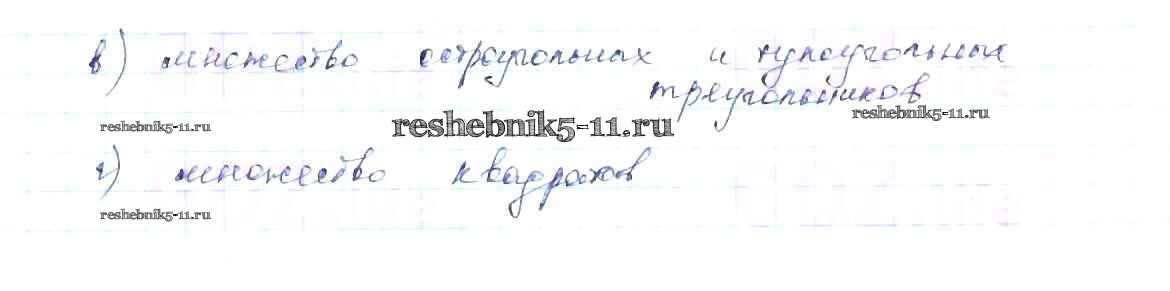 в) множество остроугольных и тупоугольных
треугольников
reshebnik5-11.ru reshebnik5-11.ru reshebnik5-11.ru
г) множество квадратов
reshebnik5-11.ru